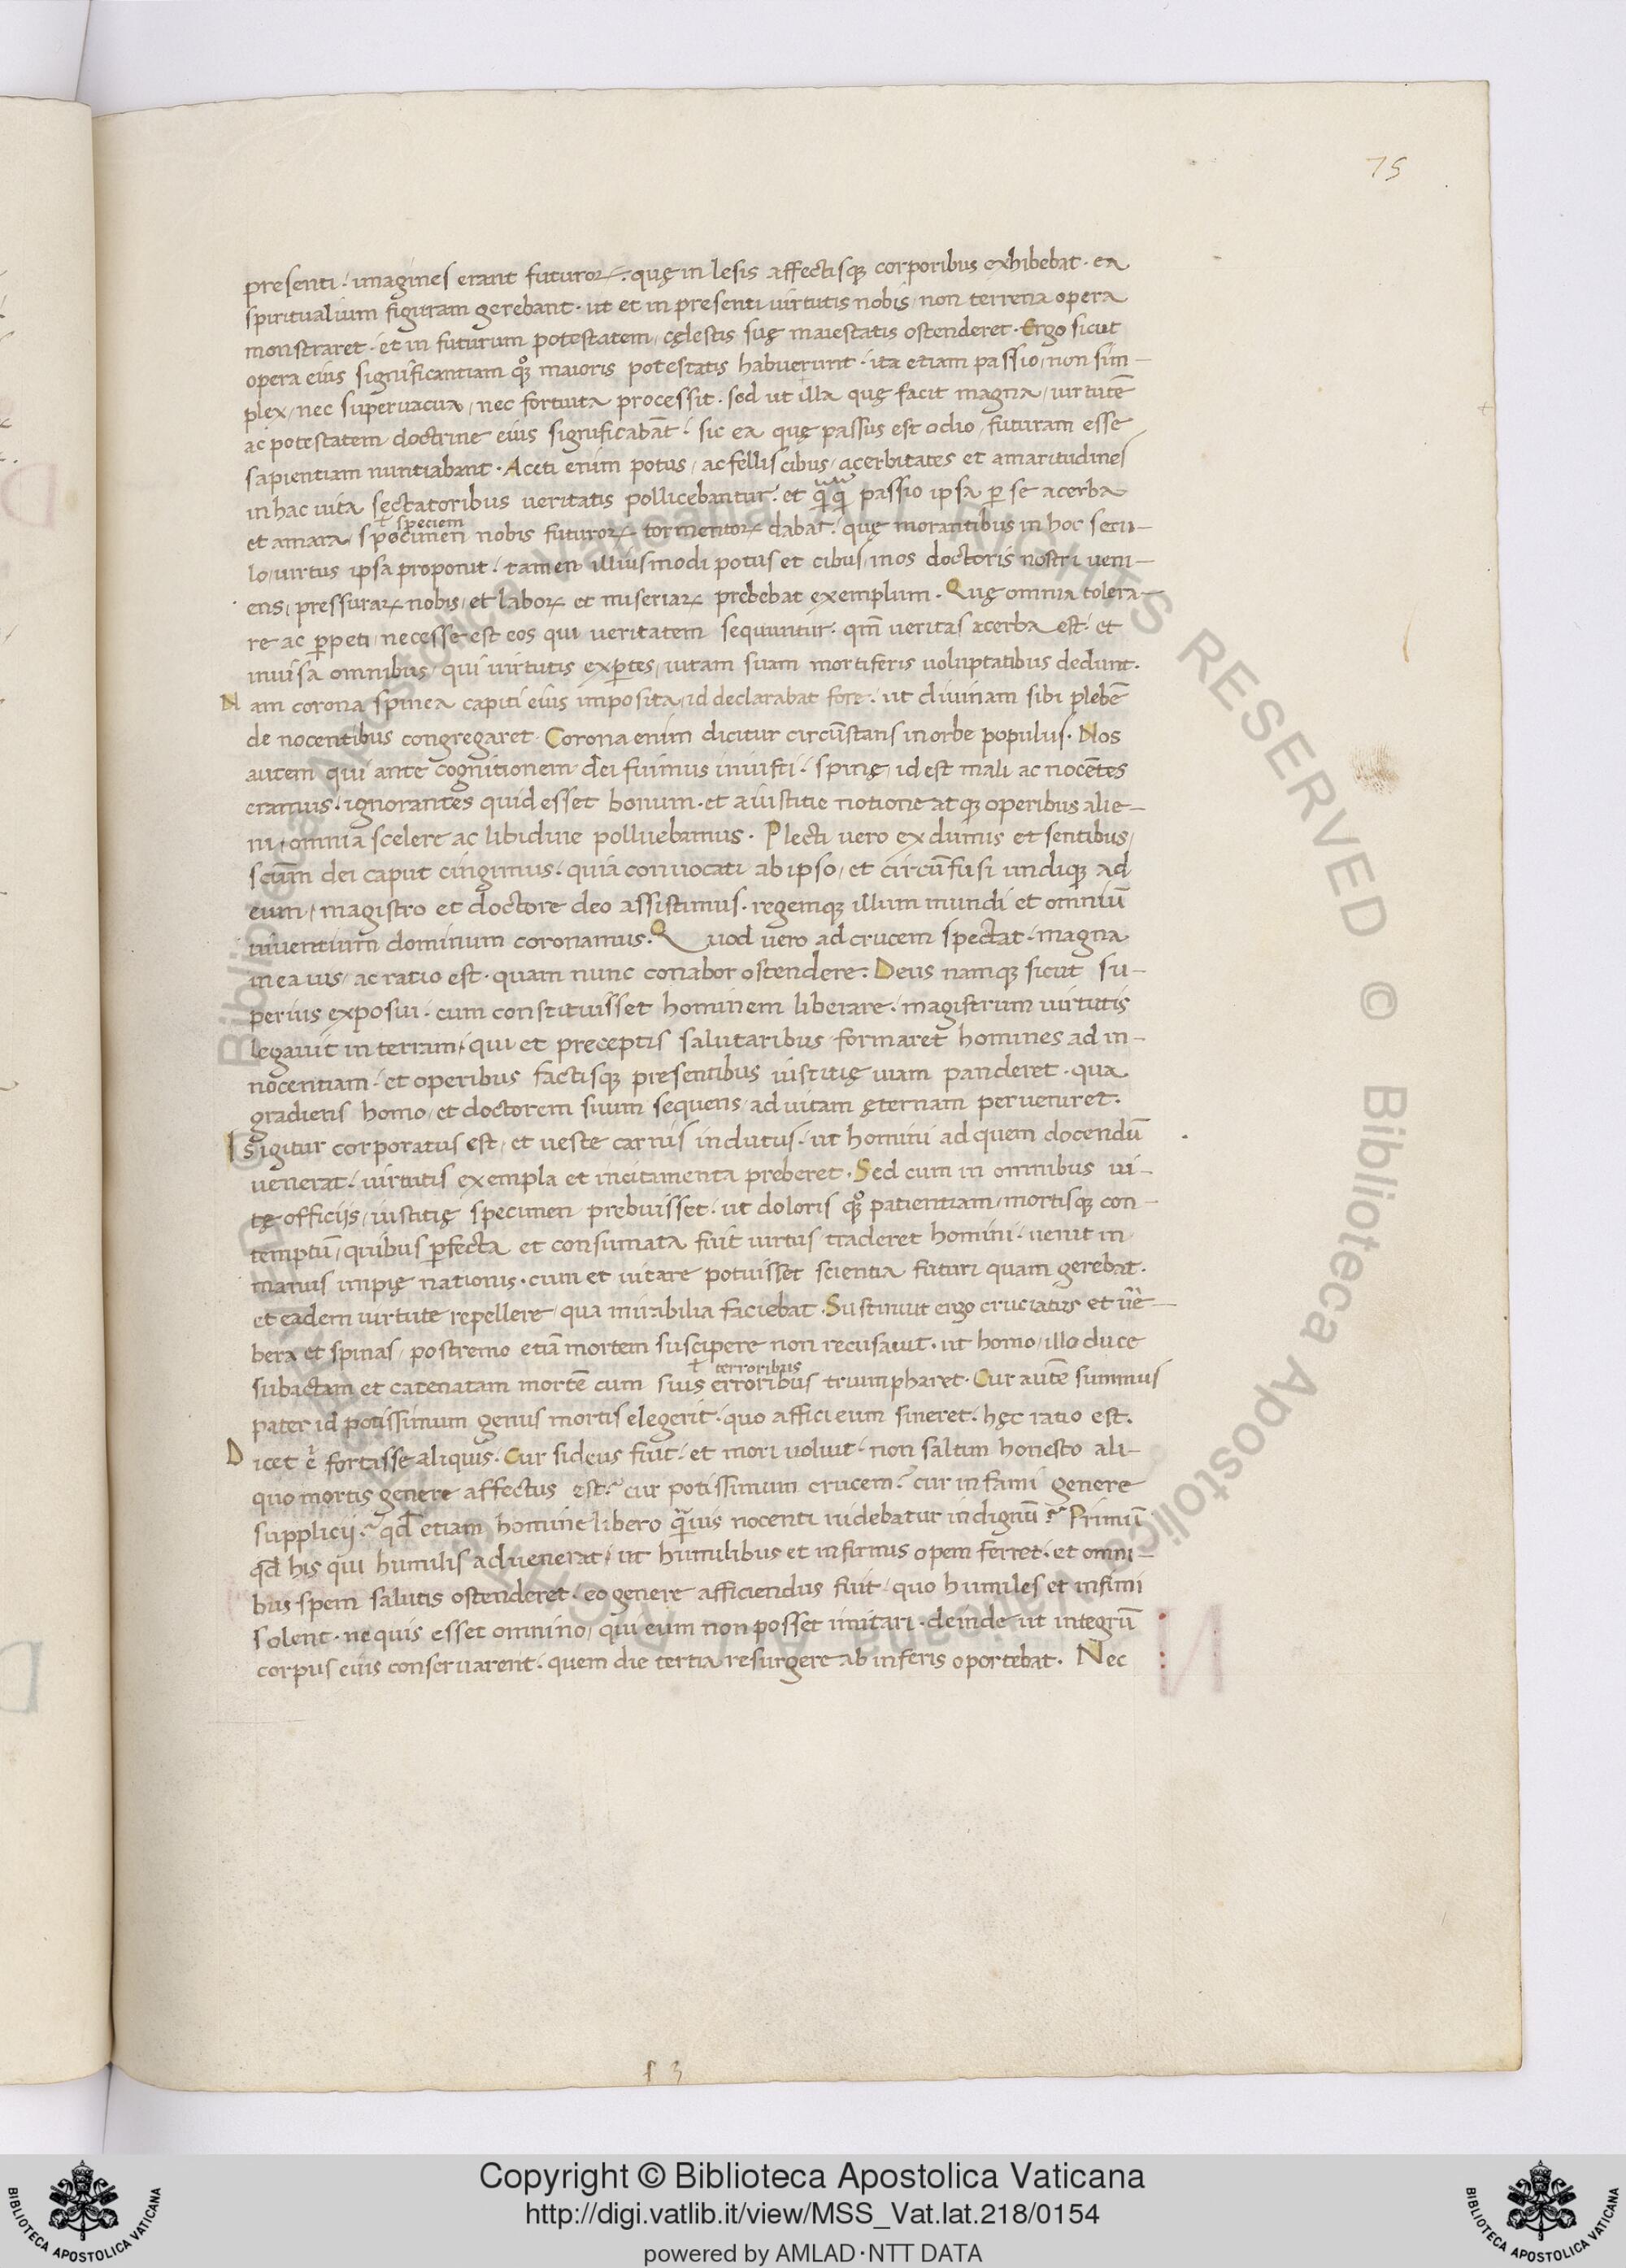 75
presenti. imagines erant futuroꝝ. quę in lesis affectisqꝫ corporibus exhibebat. ea
spiritualium figuram gerebant. ut et in presenti virtutis nobis / non terrena opera
monstraret. et in futurum potestatem / cęlestis suę maiestatis ostenderet. Ergo sicut
opera eius significantiam qͦꝫ maioris potestatis habuerunt. ita etiam passio / non sim-
plex / nec supervacua / nec fortuita processit. sed ut illa quę facit magna / virtutē
ac potestatem doctrine eius significabāt. sic ea quę passus est odio / futuram esse
sapientiam nuntiabant. Aceti enim potus / ac fellis cibus / acerbitates et amaritudines
in hac vita sectatoribus veritatis pollicebantur. et q̈q̈ passio ipsa ꝑ se acerba
ł speciem
et amara / specimen nobis futuroꝝ tormentoꝝ dabat. quę morantibus in hoc secu-
lo / virtus ipsa proponit. tamen illiusmodi potus et cibus / inos doctoris nostri veni-
ens / pressuraꝝ nobis / et laboꝝ et miseriaꝝ prebebat exemplum. Quę omnia tolera-
re ac ꝑpeti / necesse est eos qui veritatem sequuntur. qm̄ veritas acerba est. et
invisa omnibus / qui virtutis exꝑtes / vitam suam mortiferis voluptatibus dedunt.
Nam corona spinea capiti eius imposita / id declarabat fore. ut divinam sibi plebē
de nocentibus congregaret. Corona enim dicitur circūstans in orbe populus. Nos
autem qui ante cognitionem dei fuimus iniusti. spinę / id est mali ac nocētes
eramus. ignorantes quid esset bonum. et a iustitie notione atqꝫ operibus alie-
ni / omnia scelere ac libidine polluebamus. Plecti vero ex dumis et sentibus /
sc̄um dei caput cingimus. quia convocati ab ipso / et circūfusi undiqꝫ ad
eum / magistro et doctore deo assistimus. regemqꝫ illum mundi et omniū
viventium dominum coronamus. Quod vero ad crucem spectat. magna
in ea vis / ac ratio est. quam nunc conabor ostendere. Deus namqꝫ sicut su-
perius exposui. cum constituisset hominem liberare. magistrum virtutis
legavit in terram / qui et preceptis salutaribus formaret homines ad in-
nocentiam. et operibus factisqꝫ presentibus iustitię viam panderet. qua
gradiens homo / et doctorem suum sequens / ad vitam ęternam perveniret.
Is igitur corporatus est / et veste carnis indutus. ut homini ad quem docendū
venerat. virtutis exempla et incitamenta preberet. Sed cum in omnibus vi-
tę officijs / iustitię specimen prebuisset. ut doloris qͦꝫ patientiam / mortisqꝫ con-
temptū / quibus ꝑfecta et consumata fuit virtus traderet homini. venit in
manus impię nationis. cum et vitare potuisset scientia futuri quam gerebat.
et eadem virtute repellere / qua mirabilia faciebat. Sustinuit ergo cruciatus et v̄e-
bera et spinas / postremo etiā mortem suscipere non recusavit. ut homo / illo duce
ł terroribus
subactam et catenatam mortē cum suis erroribus triumpharet. Cur autē summus
pater id potissimum genus mortis elegerit. quo affici eum sineret. hęc ratio est.
Dicet .n. fortasse aliquis. Cur si deus fuit. et mori voluit. non saltim honesto ali-
quo mortis genere affectus est? cur potissimum crucem? cur infami genere
supplicij? qd̄ etiam homine libero q̈vis nocenti videbatur indignū? Primū
qd̄ his qui humilis advenerat / ut humilibus et infirmis opem ferret. et omni-
bus spem salutis ostenderet. eo genere afficiendus fuit. quo humiles et infimi
solent. ne quis esset omnino / qui eum non posset imitari. deinde ut integrū
corpus eius conservarent. quem die tertia resurgere ab inferis oportebat. Nec
f 3
Copyright © Biblioteca Apostolica Vaticana
http://digi.vatlib.it/view/MSS_Vat.lat.218/0154
powered by AMLAD·NTT DATA
BIBLIOTECA APOSTOLICA VATICANA
BIBLIOTECA APOSTOLICA VATICANA